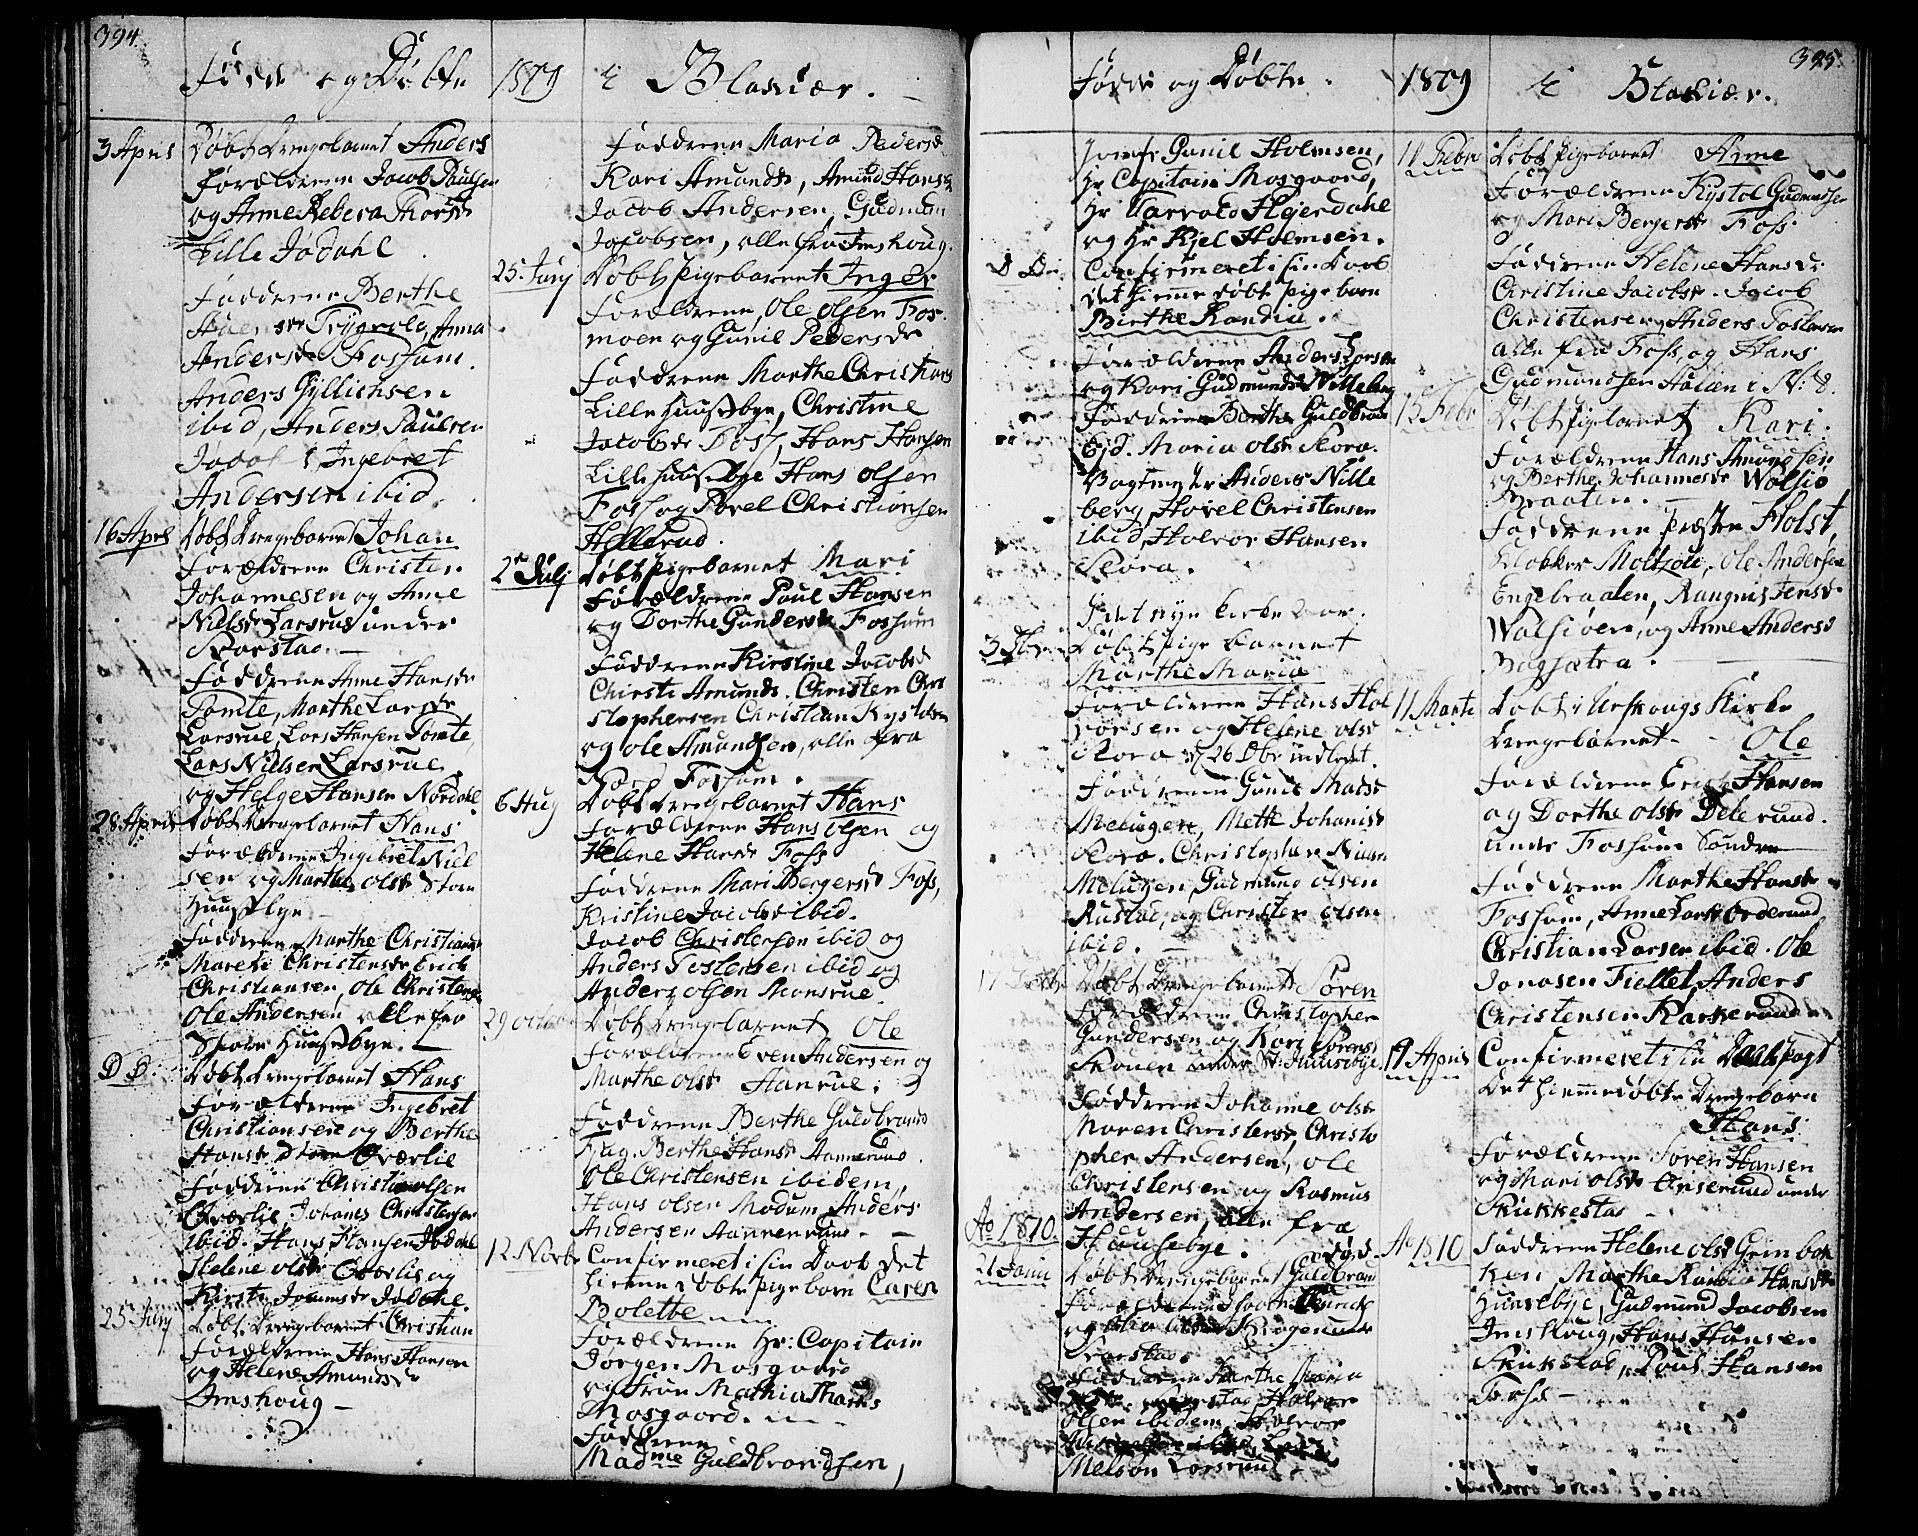 394.
Födde og Döbte 1809 i Blakiær.
3 April Döbt Drengebarnet Anders
Forældrene Jacob Paulsen
og Anne Rebeca Thorsdr
Lille Jödahl
Fadderne Berthe
Trÿgesla, Anna
Andersdr Fossum.
Anders Gyllichsen
ibid, Anders Paulsen
Jödal Ingebret
Andersen ibid.
16 Apr Döbt Drengebarnet Johan
Forældrene Christen
Johannesen og Anne
Nielsdr Larsrud under
Rarstad.
Fadderne Anne Hansdr
Tomte, Marthe Larsdr
Larsrue, Lars Hansen Tomte,
Lars Nielsen Larsrue
og Helge Hansen Nordahl
28 April Döbt Drengebarnet Hans
Forældrene Ingebret Niel
sen og Marthe Olsdr Store
Huusebye
Fadderne Marthe Christians
Marthe Christensdr Erich
Christiansen, Ole Christens
Ole Andersen alle fra
Store Huusebye.
D D. Döbt Drengebarnet Hans
Forældrene Ingebret
Christiansen og Berthe
Hansdr Store Oværlie
Fadderne Christi Olsen
Oværlie Johanes Christensen
ibid. Hans Hansen Jödahl
Helene Olsdr Overlie og
Kirsti Jonsdr Jödahl.
25 Junÿ Döbt Drengebarnet Christian
Forældrene Hans Hansen
og Helene Amundsdr
Imshoug
Fadderne Maria Pedersdr
Kari Amundsdr, Amund Hansen
Jacob Andersen, Gudmun
Jacobsen, alle fra Imshoug.
25. Junÿ Döbt Pigebarnet Inger
Forældrene, Ole Olsen Fos
moen og Gunil Pedersdr
Fadderne Marthe Christians
Lille Huusebye, Christine
Jacobsdr Foss, Hans Hansen
Lille Huusebye Hans Olsen
Foss og Povel Christiansen
Hellerud.
2 Julj Döbt Pigebarnet Mari
Forældrene Paul Hansen
og Dorthe Gundersdr Fossum
Fadderne Kirstine Jacobsd
Chirsti Amunds. Christen Chri
stophersen Christian Kystolsen
og Ole Amundsen, alle fra
Nord Fossum.
6 Aug Döbt Drengebarnet Hans
Forældrene Hans Olsen og
Helene Hansdr Foss
Fadderne Mari Bergersd Foss,
Kristine Jacobsdr ibid.
Jacob Christensen ibid og
Anders Tostensen ibid og
Anders Olsen Monsrue.
29 Octob Döbt Drengebarnet Ole
Forældrene Even Andersen og
Marthe Olsdr Aanrue.
Fadderne Berthe Guldbrand
Hag. Berthe Hansdr Aannerud.
Ole Christensen ibidem,
Hans Olsen Modum Anders
Andersen Aannerud
12. Novbr Confirmeret i sin Daab det
hjemmedöbte Pigebarn Caren
Bolette
Forældrene Hr: Capitain
Jörgen Mosgaard
og Frue Mathia Tharks
Mosgaard.
Fadderne
Madme Guldbrandsen,
395.
Födde og Döbte. 1809 i Blakiær.
Jomfr Gunil Holmsen,
Hr Capitain Mosgaard,
Hr Harrald Hejerdahl
og Hr Kjel Holmsen.
D Di. Confirmeret i sin Daab
det hjemmedöbte Pigebarn
Birthe Randia.
Forældrene Anders Larsen
og Kari Gudmundsdr Nilleberg
Fadderne Berthe Guldbrands
Eid. Maria Olsdr Kora.
Vagtmester Anders Nille
berg, Hovel Christensen
ibid, Halvor Hansen
Kora.
I det nye Kirke Aar.
3 Dbr Döbt Pigebarnet
Marthe Maria
Forældrene Hans Hal
vorsen og Helene Olsdr
Kora 26 Dbr indledt.
Fadderne Gunil Madsdr
Melugen, Mette Johansdr
Kora. Christopher Nielsen
Melugen, Gudmund Olsen
Rustad, og Christen Olsen
ibid.
17 Döbt Drengebarnet Sören
Forældrene Christopher
Gundersen og Kari Sörens
Skouen under St: Huusebye.
Fadderne Johanne Olsdr
Maren Christensdr, Christo
pher Andersen, Ole
Christensen og Rasmus
Andersen, alle fra
Huusebye.
Ao 1810.
21 Janu Döbt Drengebarnet Guldbran död.
Forældrene
og Krogsrud
Rarstad
Fadderne Marthe Maria
Halvor
Olsen ibidem, Halvor
Melson Larsrud
11 Febr Döbt Pigebarnet Anne
Forældrene Kystol Gudmundsen
og Mari Bergersdr Foss.
Fadderne Helene Hansdr
Christine Jacobsdr. Jacob
Christensen og Anders Tostensen
alle fra Foss, og Hans
Gudmundsen Hallen i N: S.
15 Febr Döbt Pigebarnet Kari.
Forældrene Hans Amundsen
og Berthe Johannesdr Walsiö
Braaten.
Fadderne Præsten Holst,
Klokker Moltzau, Ole Andersen
Engebraaten, Raugnil Jensdr
Walsiöen, og Anne Anders
Bagsætra.
11 Marti Döbt i Urskougs Kirke
Drengebarnet Ole
Forældrene Erich Hansen
og Dorthe Olsdr Delerund.
under Fossum Söndre
Fadderne Marthe Hansdr
Fossum, Anne Larsdr Orderund
Christian Larsen ibid. Ole
Jonasen Fiellet, Anders
Christensen Karterund
19 April Confirmeret i sin Daabspagt
det hiemmedöbte Drengebarn
Hans
Forældrene Sören Hansen
og Mari Olsdr Onserund under
Rikkestad
Ao 1810 Fadderne Helene Olsdr Grinbak
ken Marthe Karia Hansdr
Huusebye, Gudmund Jacobsen
Imshoug, Hans Hansen
Rikkestad, Poul Hansen
Foss